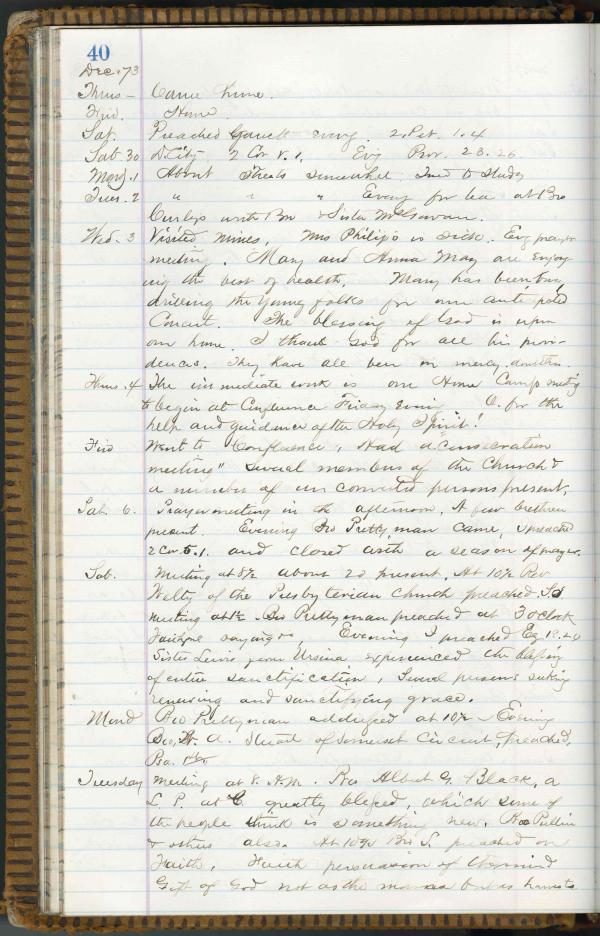 40
Dec. 73
Thurs - Came home.
Frid. Home.
Sat. Preached evng. 2. Pet. 1.4
Sab. 30 D. City 2 Cor. V. 1. Evg Prov. 23. 26
Mon. 1 About Streets somewhat. Tried to study
Tues. 2 " " " Evening for tea at Bro
with Bro & Sister McGowan.
Wed. 3 Visited Mines, Mrs is sick. Evg prayer
meeting. Mary and Anna May are enjoy-
ing the best of health. Mary has been busy
drilling the Young folks for our anticipated
Concert. The blessing of God is upon
our home. I thank God for all his provi-
dences. They have all been in mercy
Thurs. 4 The immediate work is our Home Camp meeting
to begin at Confluence Friday Evening. O. for the
help and guidance of the Holy Spirit!
Frid Went to Confluence, Had a "Consecration
meeting" several members of the Church &
a number of unconverted persons present.
Sat. 6. Prayer meeting in the afternoon. A few brethren
present. Evening Bro Prettyman came, I preached
2 Cor. 5. 1. and closed with a season of prayer.
Sab. Meeting at 8½ about 20 present. At 10½ Rev
Welty of the Presbyterian Church preached. S.S
meeting at 1½. Bro Prettyman preached at 3 o'clock
saying Evening I preached
Sister Lewis from Ursina, experienced the blessing
of entire sanctification, Several persons seeking
renewing and sanctifying grace.
Mond Bro Prettyman addressed at 10½ - Evening
Bro, of Somerset Circuit, preached,
Tuesday Meeting at 8. A.M. Bro Albert G. Black, a
L. P. at C. greatly blessed, which some of
the people think is something new. Pullin
& others also. At 10½ Bro S. preached on
Faith, Faith persuasion of the mind
Gift of God not as the manna but as harvests